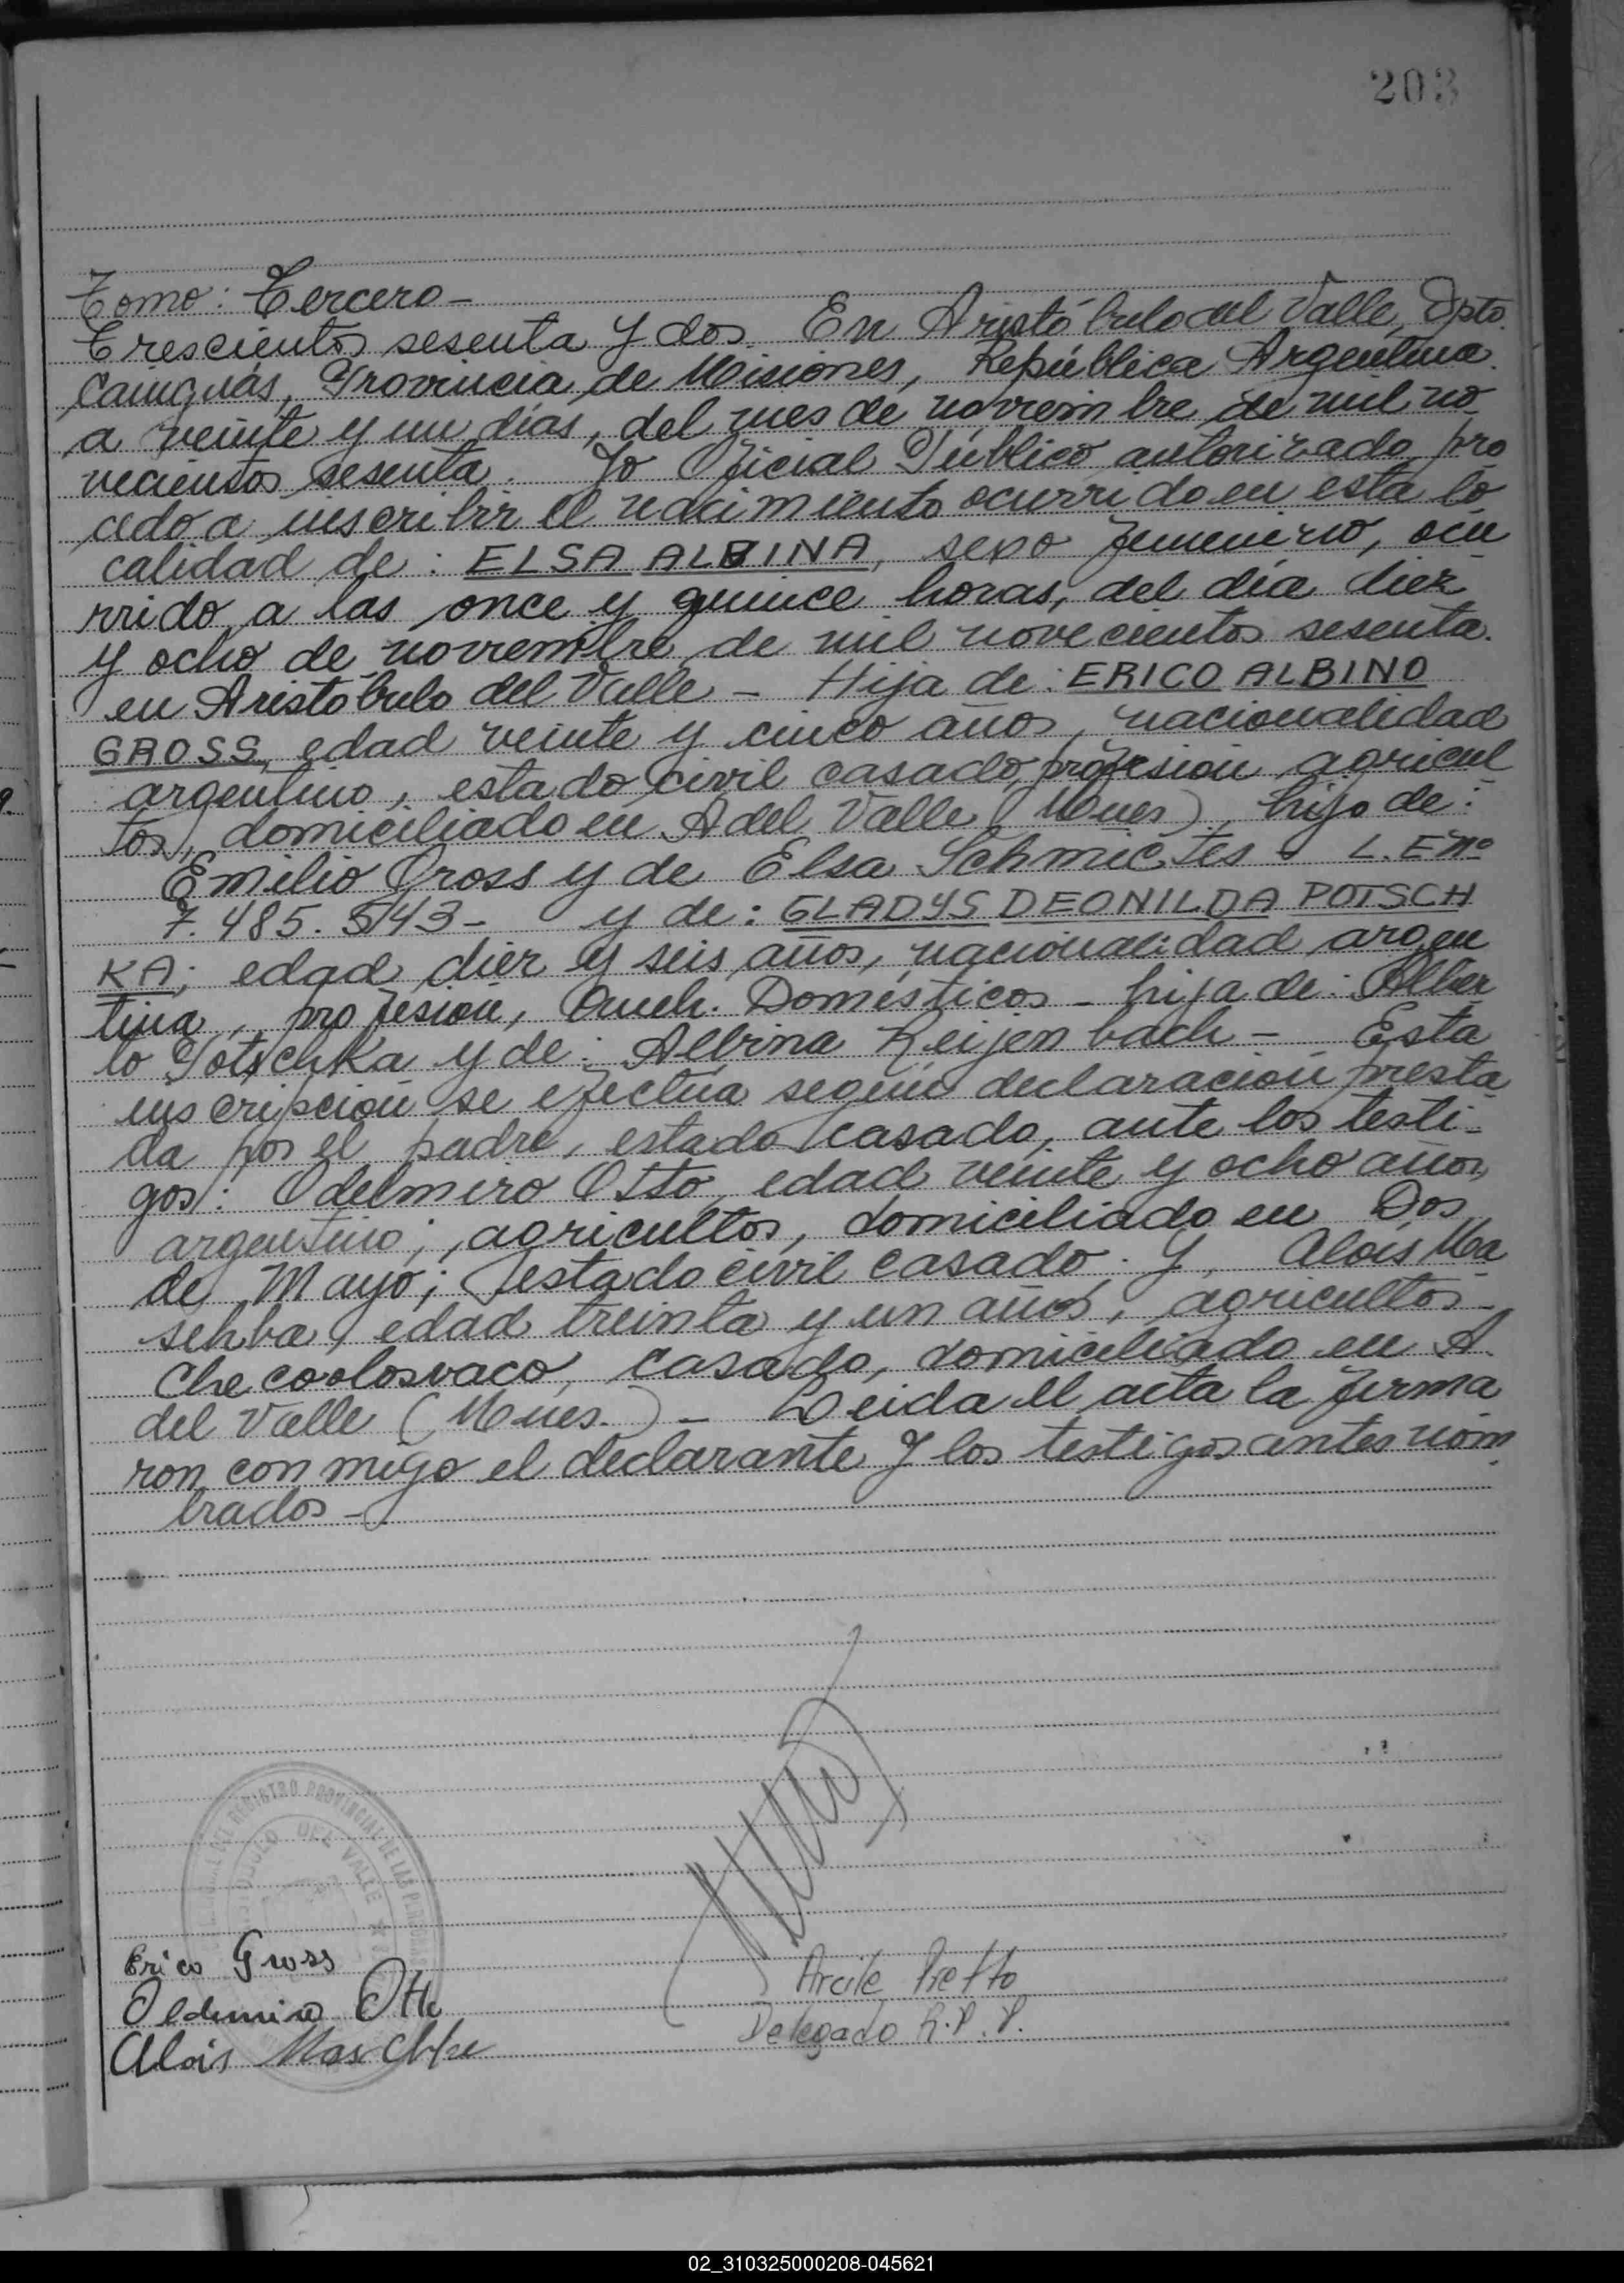 203
Tomo: Tercero-
Trescientos sesenta y dos. En Aristóbulo del Valle, Dpto.
Cainguás, Provincia de Misiones, República Argentina.
a veinte y un días, del mes de noviembre de mil no
vecientos sesenta. Yo Oficial Público autorizado, pro
cedo a inscribir el nacimiento ocurrido en esta lo
calidad de: ELSA ALBINA, sexo femenino, ocu
rrido a las once y quince horas, del día diez
y ocho de noviembre de mil novecientos sesenta.
en Aristóbulo del Valle - Hija de: ERICO ALBINO
GROSS, edad veinte y cinco años, nacionalidad
argentino, estado civil casado, profesión agricul
tor, domiciliado en A del Valle (Mnes), hijo de:
Emilio Gross y de Elsa Schmictes. L.E Nº
7.485.543- y de: GLADYS DEONILDA POTSCH
KA; edad diez y seis años, nacionalidad argen
tina, profesión, Domésticos - hija de: Alber
to Potschka y de: Albina Reijenbach - Esta
inscripción se efectúa según declaración presta
da por el padre, estado casado, ante los testi-
gos: Odelmiro Otto, edad veinte y ocho años,
argentino; agricultor, domiciliado en Dos
de Mayo; estado civil casado. Y, Alois Ma
sehba, edad treinta y un años, agricultor-
Checooloslovaco, casado, domiciliado en A.
del Valle (Mnes.) - Leida el acta la firma
ron conmigo el declarante y los testigos antes nom
brados-
DEL REGISTRO PROVINCIAL DE LAS PERSONAS
DEL VALLE
Erico Gross
Oldemiro Otto
Alois
Arcile Pretto
Delegado R.P.P.
02_310325000208-045621